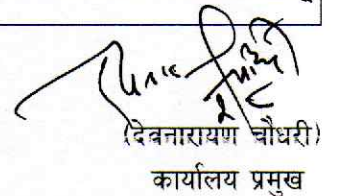 (देवनारायण चौधरी)
कार्यालय प्रमुख